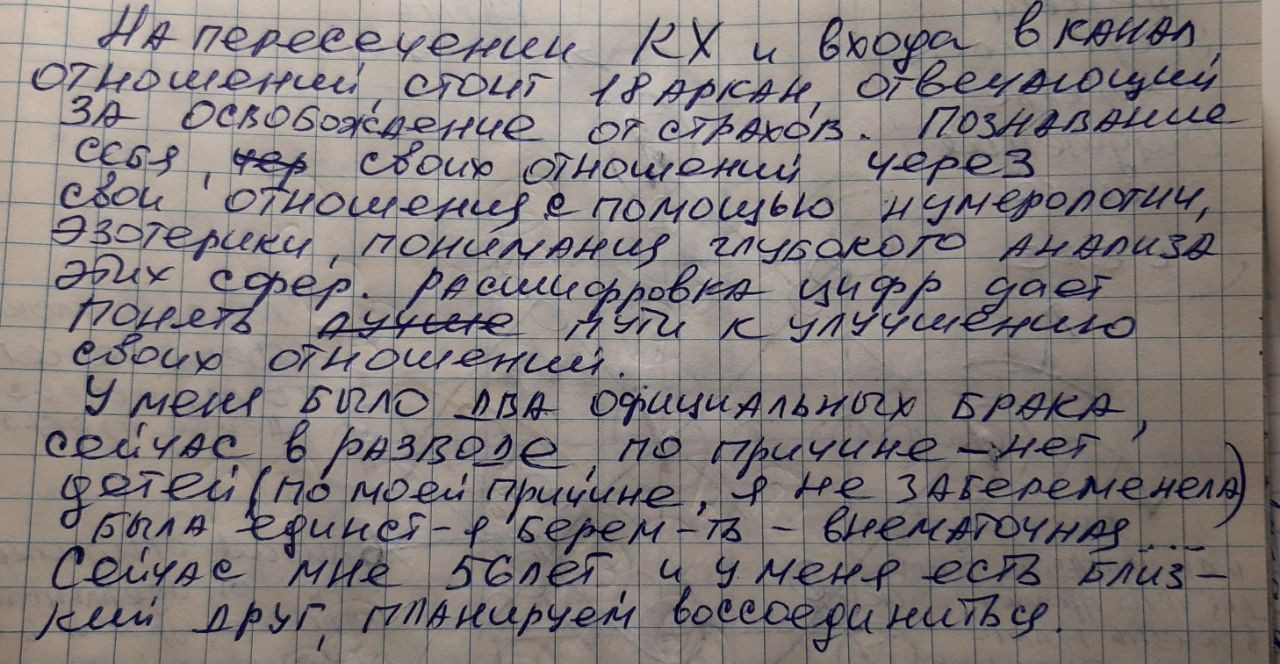 На пересечении КХ и входа в канал
отношений, стоит 18 аркан, отвечающий
за освобождение от страхов. Познавание
себя, чер своих отношений через
свои отношения с помощью нумерологии,
эзотерики, понимания глубокого анализа
этих сфер. Расшифровка цифр дает
понять лучше пути к улучшению
своих отношений.
У меня было два официальных брака,
сейчас в разводе, по причине – нет
детей (по моей причине, я не забеременела)
Была единст-я берем-ть – внематочная ...
Сейчас мне 56 лет и у меня есть близ-
кий друг, планируем воссоединиться.